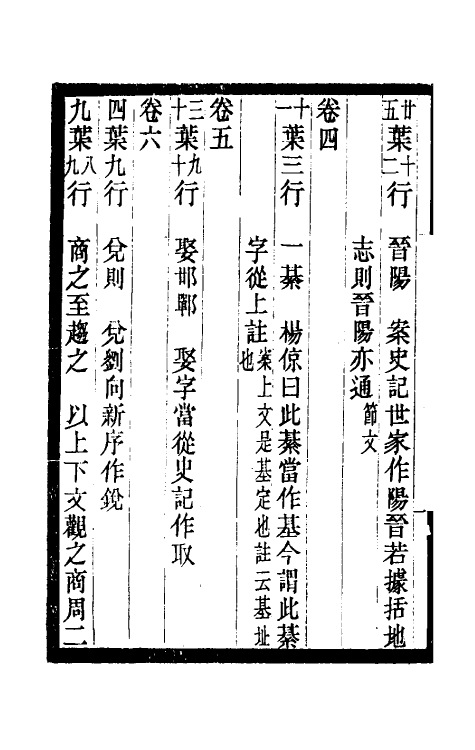 廿五葉十二行　晉陽　案史記世家作陽晉若據括地
志則晉陽亦通節文
卷四
十一葉三行　一綦　楊倞曰此綦當作基今謂此綦
字從上註案上文是基定也註云基址也
卷五
三十葉九十行　娶邯鄲　娶字當從史記作取
卷六
四葉九行　兌則　兌劉向新序作銳
九葉八九行　商之至趨之　以上下文觀之商周二